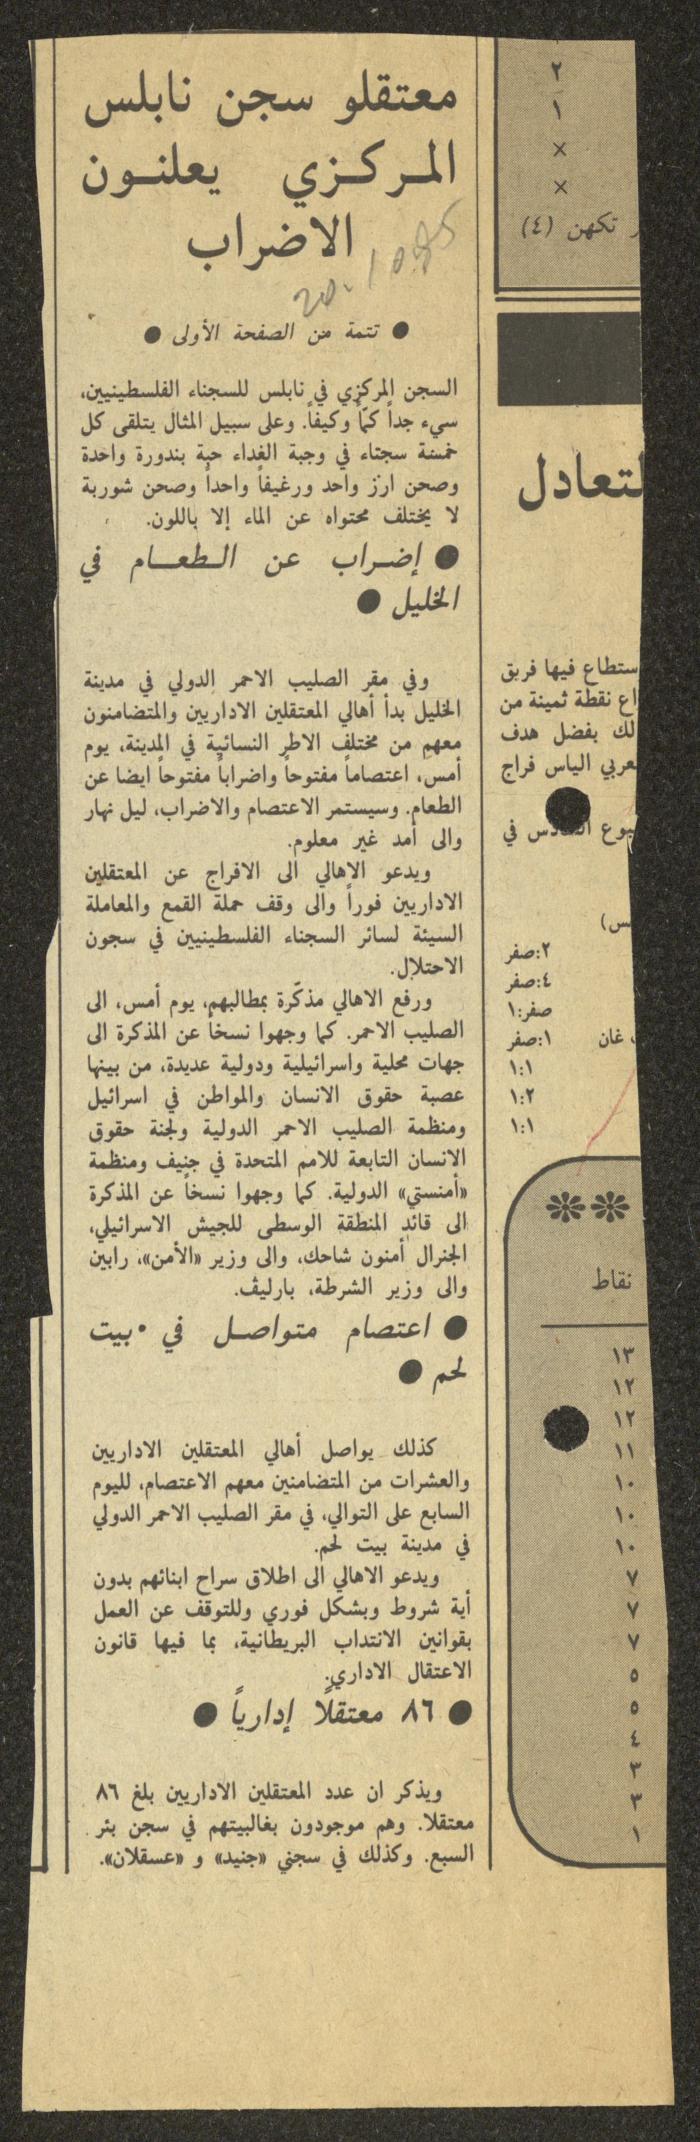 معتقلو سجن نابلس
المركزي يعلنون
الاضراب
20.10.85
● تتمة من الصفحة الأولى ●
السجن المركزي في نابلس للسجناء الفلسطينيين،
سيء جداً كمّاً وكيفاً. وعلى سبيل المثال يتلقى كل
خمسة سجناء في وجبة الغداء حبة بندورة واحدة
وصحن ارز واحد ورغيفاً واحداً وصحن شوربة
لا يختلف محتواه عن الماء إلا باللون.
● إضراب عن الطعام في
الخليل ●
وفي مقر الصليب الاحمر الدولي في مدينة
الخليل بدأ أهالي المعتقلين الاداريين والمتضامنون
معهم من مختلف الاطر النسائية في المدينة، يوم
أمس، اعتصاماً مفتوحاً واضراباً مفتوحاً ايضا عن
الطعام. وسيستمر الاعتصام والاضراب، ليل نهار
والى أمد غير معلوم.
ويدعو الاهالي الى الافراج عن المعتقلين
الاداريين فوراً والى وقف حملة القمع والمعاملة
السيئة لسائر السجناء الفلسطينيين في سجون
الاحتلال.
ورفع الاهالي مذكّرة بمطالبهم، يوم أمس، الى
الصليب الاحمر. كما وجهوا نسخاً عن المذكرة الى
جهات محلية واسرائيلية ودولية عديدة، من بينها
عصبة حقوق الانسان والمواطن في اسرائيل
ومنظمة الصليب الاحمر الدولية ولجنة حقوق
الانسان التابعة للامم المتحدة في جنيف ومنظمة
«أمنستي» الدولية. كما وجهوا نسخاً عن المذكرة
الى قائد المنطقة الوسطى للجيش الاسرائيلي،
الجنرال أمنون شاحك، والى وزير «الأمن»، رابين
والى وزير الشرطة، بارليف.
● اعتصام متواصل في بيت
لحم ●
كذلك يواصل أهالي المعتقلين الاداريين
والعشرات من المتضامنين معهم الاعتصام، لليوم
السابع على التوالي، في مقر الصليب الاحمر الدولي
في مدينة بيت لحم.
ويدعو الاهالي الى اطلاق سراح ابنائهم بدون
أية شروط وبشكل فوري وللتوقف عن العمل
بقوانين الانتداب البريطانية، بما فيها قانون
الاعتقال الاداري.
● ٨٦ معتقلًا إدارياً ●
ويذكر ان عدد المعتقلين الاداريين بلغ ٨٦
معتقلا. وهم موجودون بغالبيتهم في سجن بئر
السبع. وكذلك في سجني «جنيد» و «عسقلان».
٢
١
×
×
تكهن (٤)
لتعادل
ستطاع فيها فريق
اع نقطة ثمينة من
لك بفضل هدف
عربي الياس فراج
بوع السادس في
س)
٢:صفر
٤:صفر
صفر:١
غان ١:صفر
١:١
١:٢
١:١
نقاط
١٣
١٢
١٢
١١
١٠
١٠
١٠
٧
٧
٧
٥
٥
٤
٣
٣
١